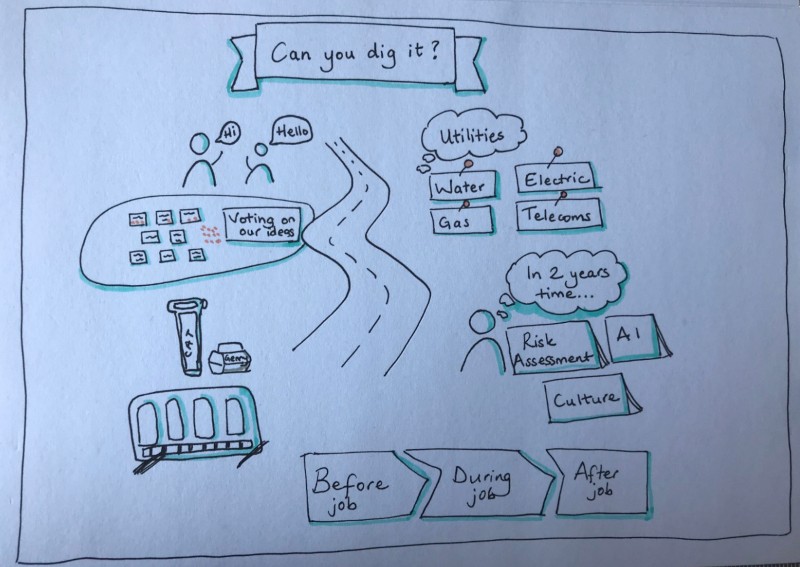 Can you dig it?
Hi
Hello
Utilities
Water
Electric
Gas
Telecoms
Voting on
our ideas
In 2 years
time...
Risk
Assessment
AI
Culture
Before
job
During
job
After
job